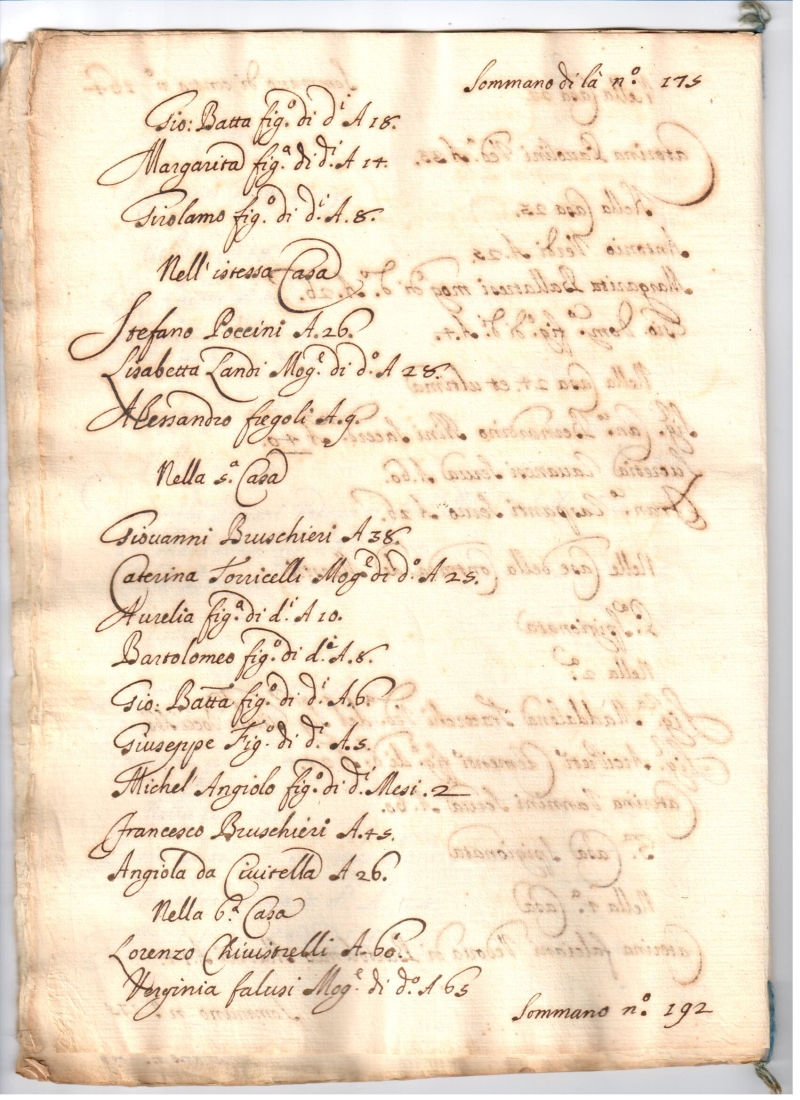 Sommano di là n.º 175
Gio: Batta fig.º di d.i A 18.
Margarita fig.a di d.i A 14.
Girolamo fig.º di d.i A. 8.
Nell' istessa Casa
Stefano Poccini A. 26.
Lisabetta Landi Mog.e di d.º A 28.
Alessandro fregoli A. 9.
Nella 5.a Casa
Giovanni Bruschieri A 38.
Caterina Torricelli Mog.e di d.º A 25.
Aurelia fig.a di d.i A 10.
Bartolomeo fig.º di d.i A. 8.
Gio: Batta fig.º di d.i A. 6.
Giuseppe Fig.º di d.i A. 5.
Michel' Angiolo fig.º di d.i Mesi. 2
Francesco Bruschieri A. 45.
Angiola da Civitella A 26.
Nella 6.a Casa
Lorenzo Chivistrelli A. 60.
Verginia falusi Mog.e di d.º A 65
Sommano n.º 192